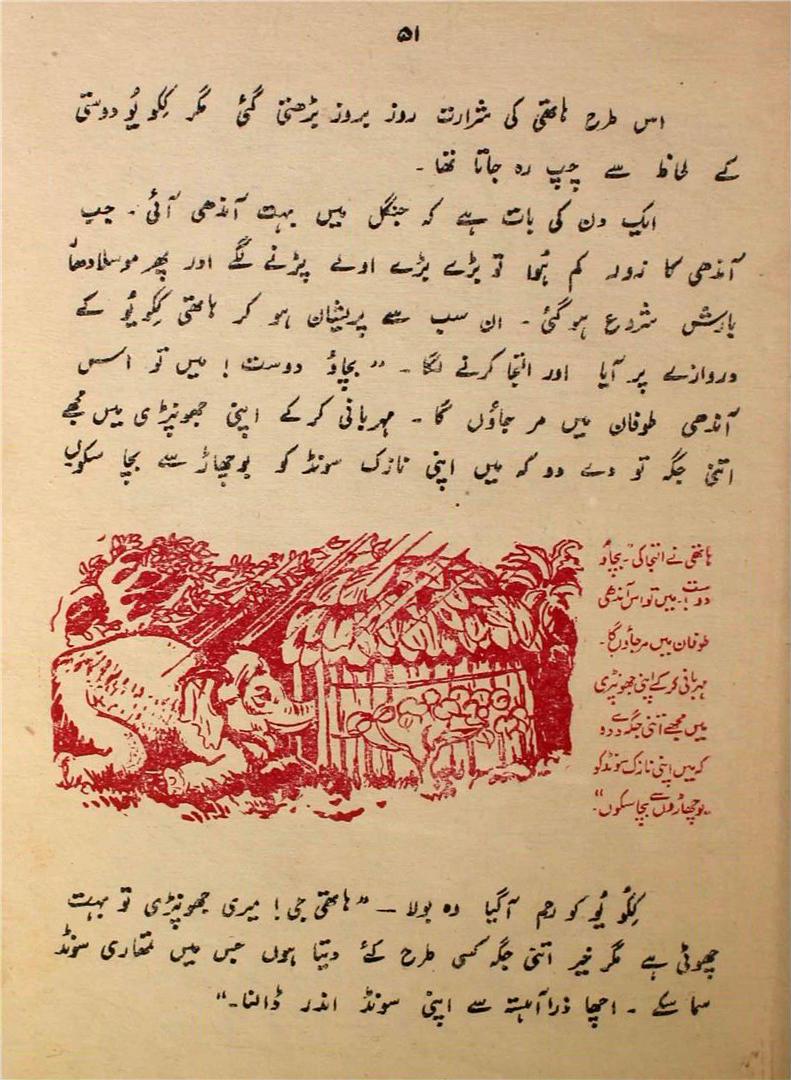 ۵۱
اس طرح ہاتھی کی شرارت روز بروز بڑھتی گئی مگر ککو یُو دوستی
کے لحاظ سے چپ رہ جاتا تھا ۔
ایک دن کی بات ہے کہ جنگل میں بہت آندھی آئی ۔ جب
آندھی کا زور کم ہُوا تو بڑے بڑے اولے پڑنے لگے اور پھر موسلادھار
بارش شروع ہو گئی ۔ ان سب سے پریشان ہو کر ہاتھی ککو یُو کے
دروازے پر آیا اور التجا کرنے لگا ۔ ”بچاؤ دوست ! میں تو اس
آندھی طوفان میں مر جاؤں گا ۔ مہربانی کر کے اپنی جھونپڑی میں مجھے
اتنی جگہ تو دے دو کہ میں اپنی نازک سونڈ کو بوچھاڑ سے بچا سکوں
ہاتھی نے التجا کی ”بچاؤ
دوست! ۔ میں تو اس آندھی
طوفان میں مر جاؤں گا ۔
مہربانی کر کے اپنی جھونپڑی
میں مجھے اتنی جگہ دے دو
کہ میں اپنی نازک سونڈ کو
بوچھاڑوں سے بچا سکوں“۔
ککُو یُو کو رحم آگیا وہ بولا — ”ہاتھی جی ! میری جھونپڑی تو بہت
چھوٹی ہے مگر خیر اتنی جگہ کسی طرح کئے دیتا ہوں جس میں تمھاری سونڈ
سما سکے ۔ اچھا ذرا آہستہ سے اپنی سونڈ اندر ڈالنا ۔“